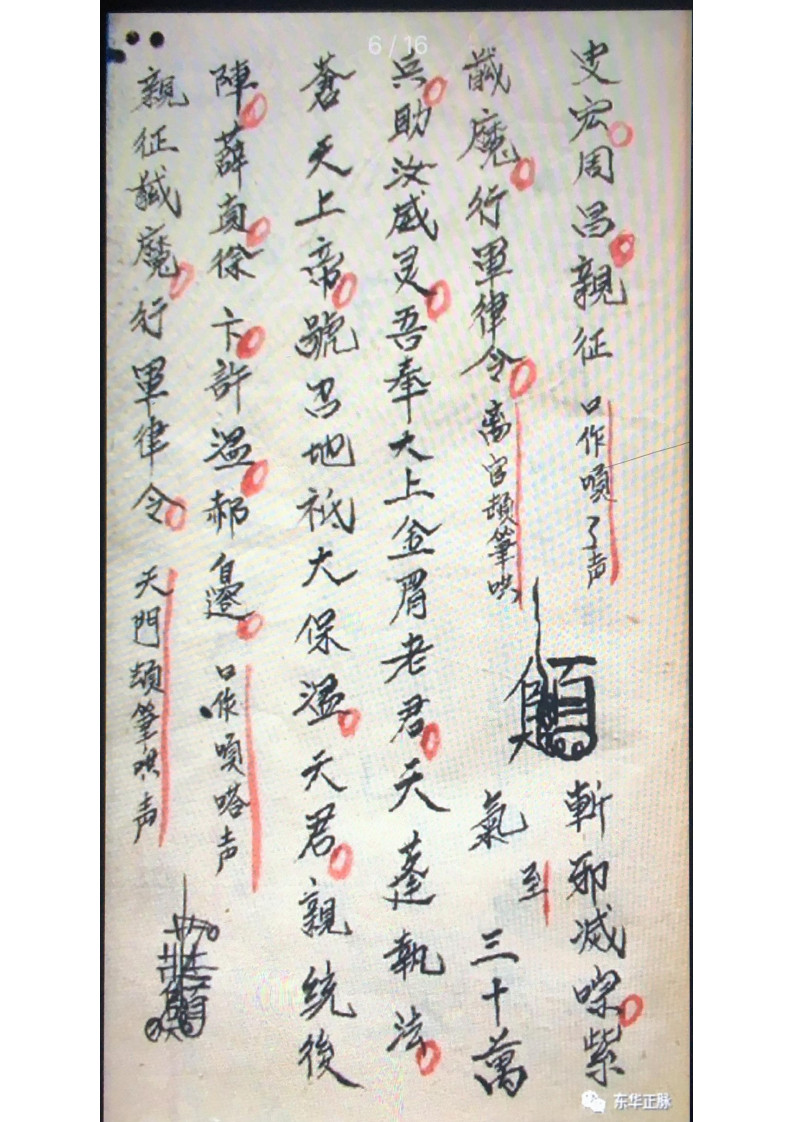 6 / 16
史宏周昌親征 口作嗊了声 斬邪滅 紫
馘魔行軍律令 离宫 筆哄 氣至三十萬
兵助汝威灵吾奉太上金眉老君天蓬執法
蒼天上帝號召地祇太保溫天君親統後
陣薛真徐卞許溫郝邊 口作嗊嗒声
親征馘魔行軍律令 天門 筆哄声
东华正脉